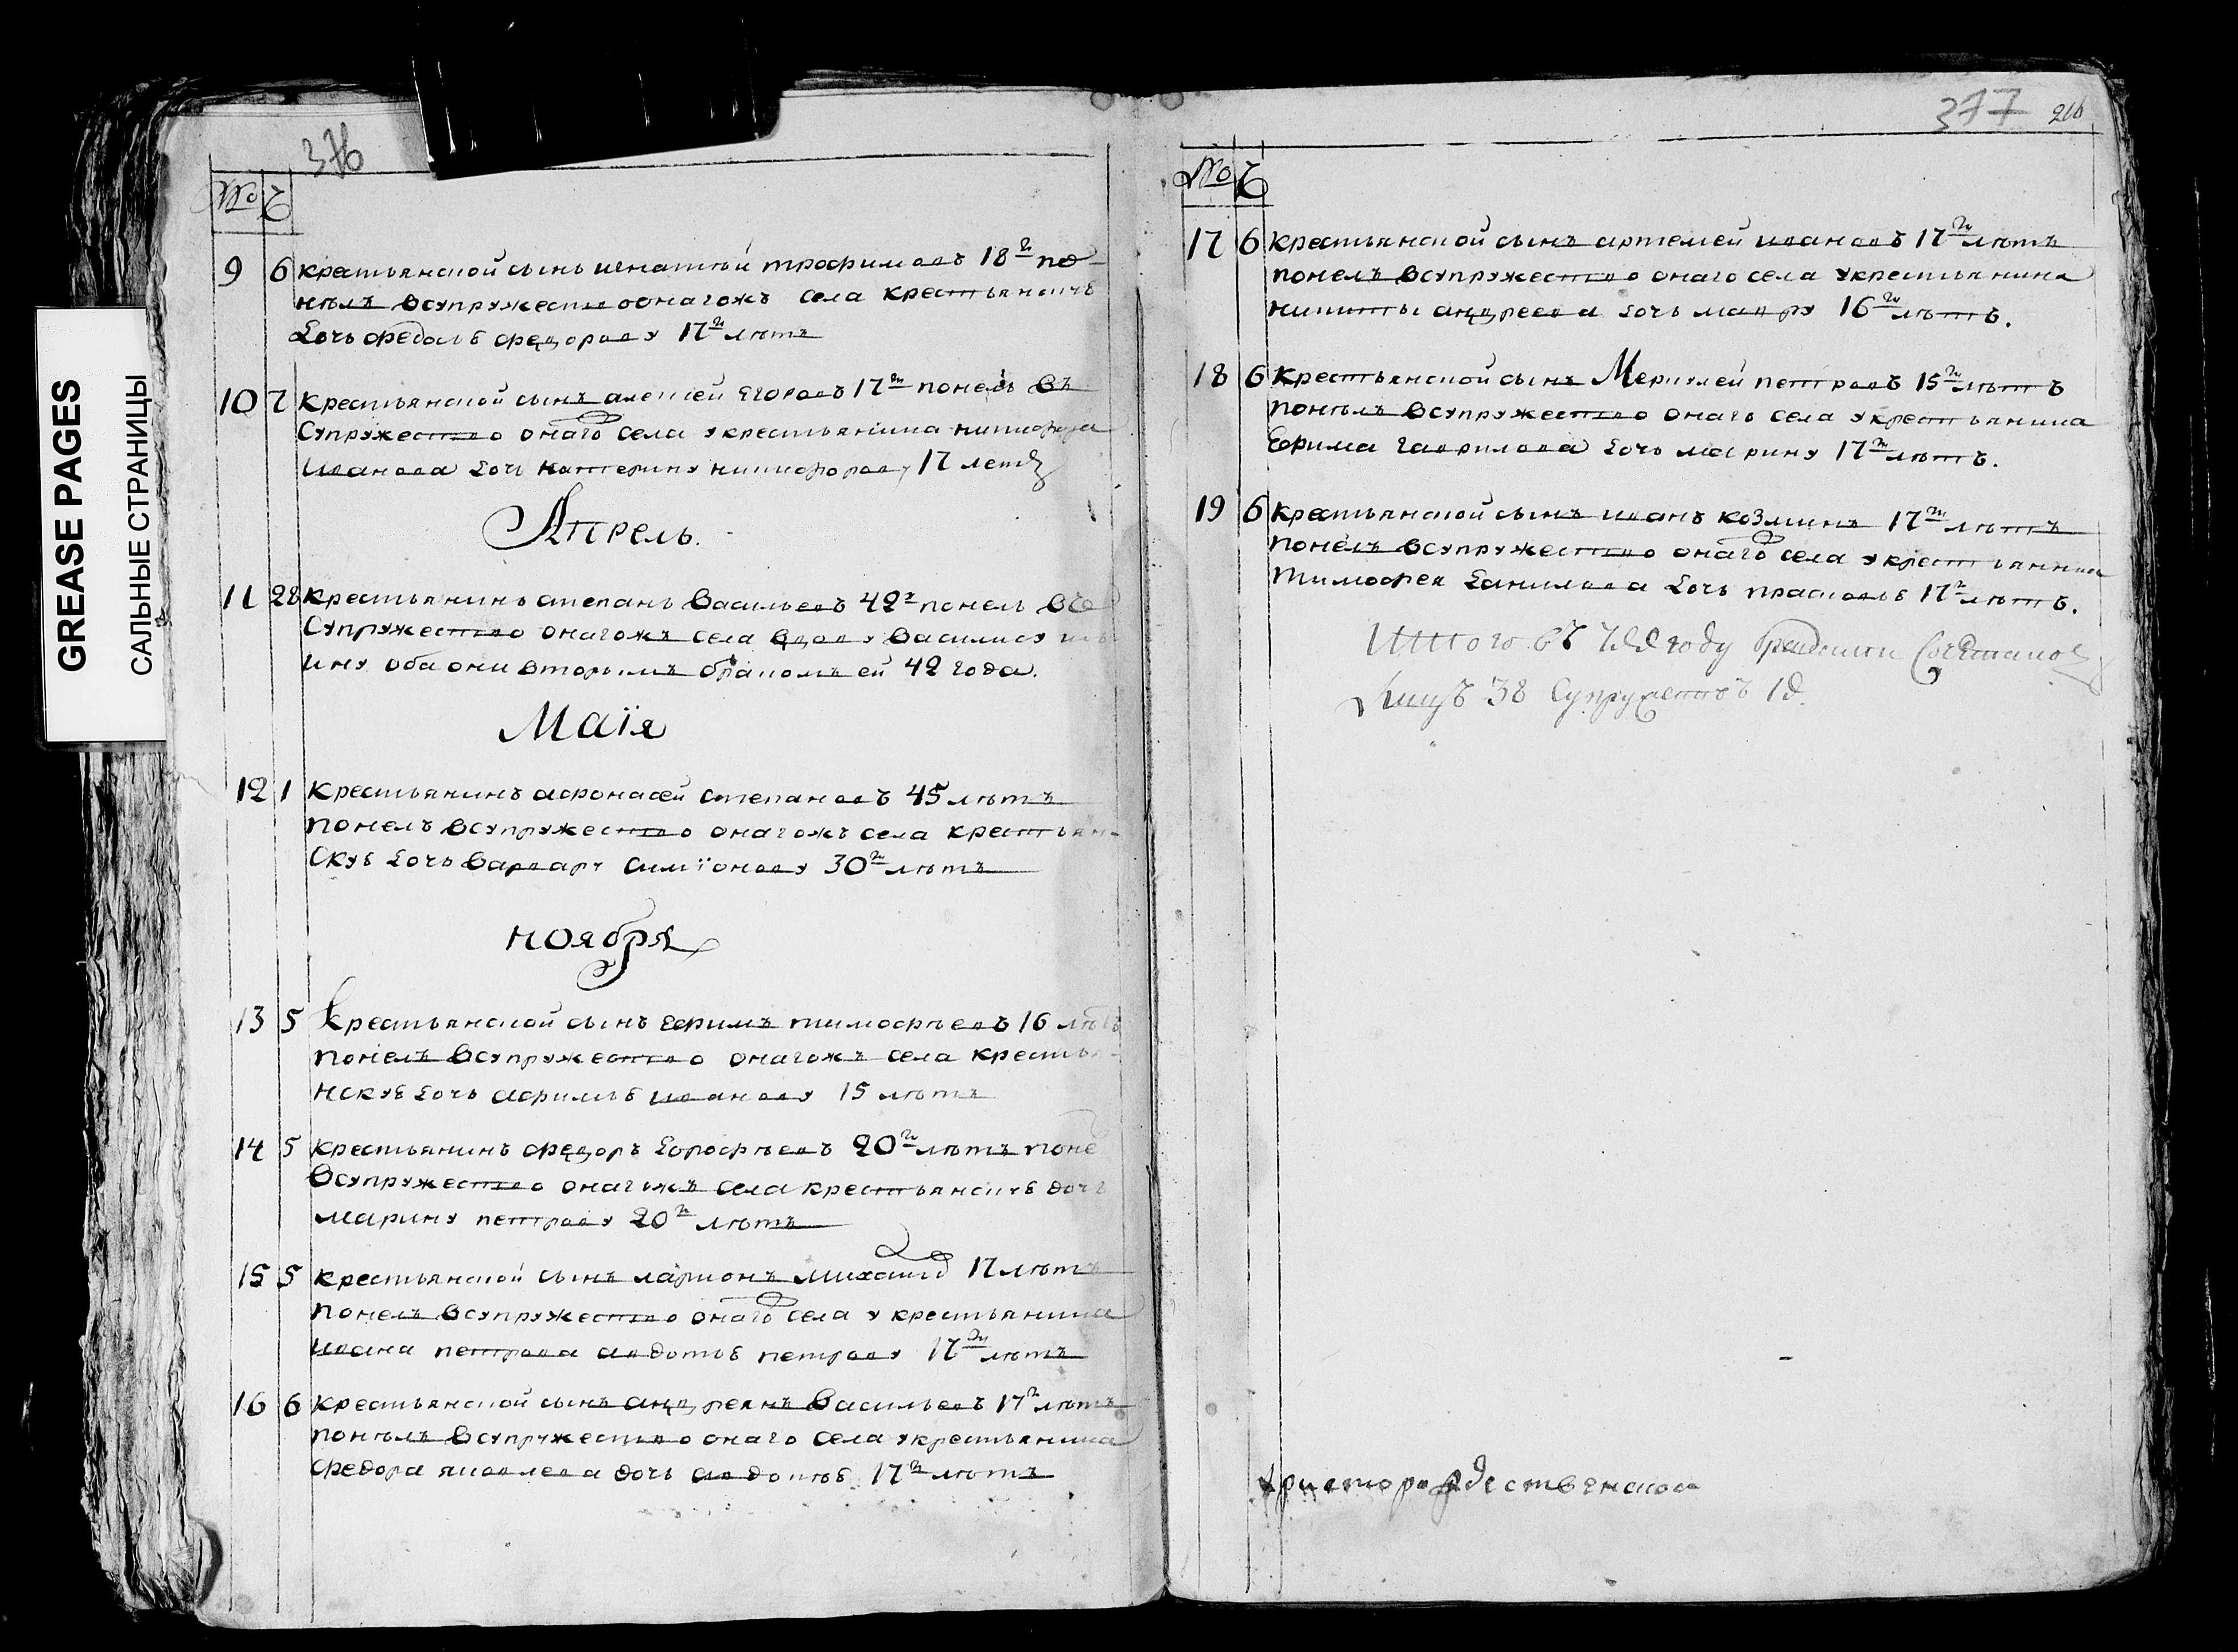 GREASE PAGES
САЛЬНЫЕ СТРАНИЦЫ
376
№ Ч
9 6 крестьянской сынъ игнатѣй трофимовъ 18ти по-
нялъ всупружество онагожъ села крестьянскую
дочь федосью федорову 17ти лѣтъ
10 7 Крестьянской сынъ алексей Егоровъ 17ти понелъ въ
Супружество онаго села укрестьянина никифора
Иванова дочь катерину никифорову 17 летъ
Апрель.
11 28 крестьянинъ степанъ Васильевъ 42х понелъ все
Супружество онагожъ села вдову василису
ину оба они вторымъ бракомъ ей 42 года.
Маїя
12 1 крестьянинъ афонасей степановъ 45 лѣтъ
понелъ всупружество онагожъ села крестьян-
скую дочь варвару симїонову 30ти лѣтъ
ноября
13 5 крестьянской сынъ ефимъ тимофѣевъ 16 лѣтъ
понелъ всупружество онагожъ села крестья-
нскую дочь афимью иванову 15 лѣтъ
14 5 крестьянинъ федоръ дорофѣевъ 20ти лѣтъ поне
всупружество онагожъ села крестьянскую дочь
марину петрову 20ти лѣтъ
15 5 крестьянской сынъ ларионъ михайлов 17 лѣтъ
понелъ всупружество онаго села укрестьянина
ивана петрова авдотью петрову 17ти лѣтъ
16 6 крестьянской сынъ андреянъ Васильевъ 17ти лѣтъ
понялъ всупружество онаго села укрестьянина
федора яковлева дочь авдотью 17ти лѣтъ
377 216
№ Ч
17 6 крестьянской сынъ артемей ивановъ 17ти лѣтъ
понелъ всупружество онаго села укрестьянина
никиты андреева дочь мавру 16ти лѣтъ.
18 6 крестьянской сынъ Меркулей петровъ 15ти лѣтъ
понялъ всупружество онаго села укрестьянина
Ефима гаврилова дочь марину 17ти лѣтъ.
19 6 крестьянской сынъ иванъ козминъ 17ти лѣтъ
понелъ всупружество онаго села укрестьянина
тимофея данилова дочь прасковью 17ти лѣтъ.
Итого въ году бракомъ Сочетано
лицъ 38 Супружествъ 19.
христорождественской